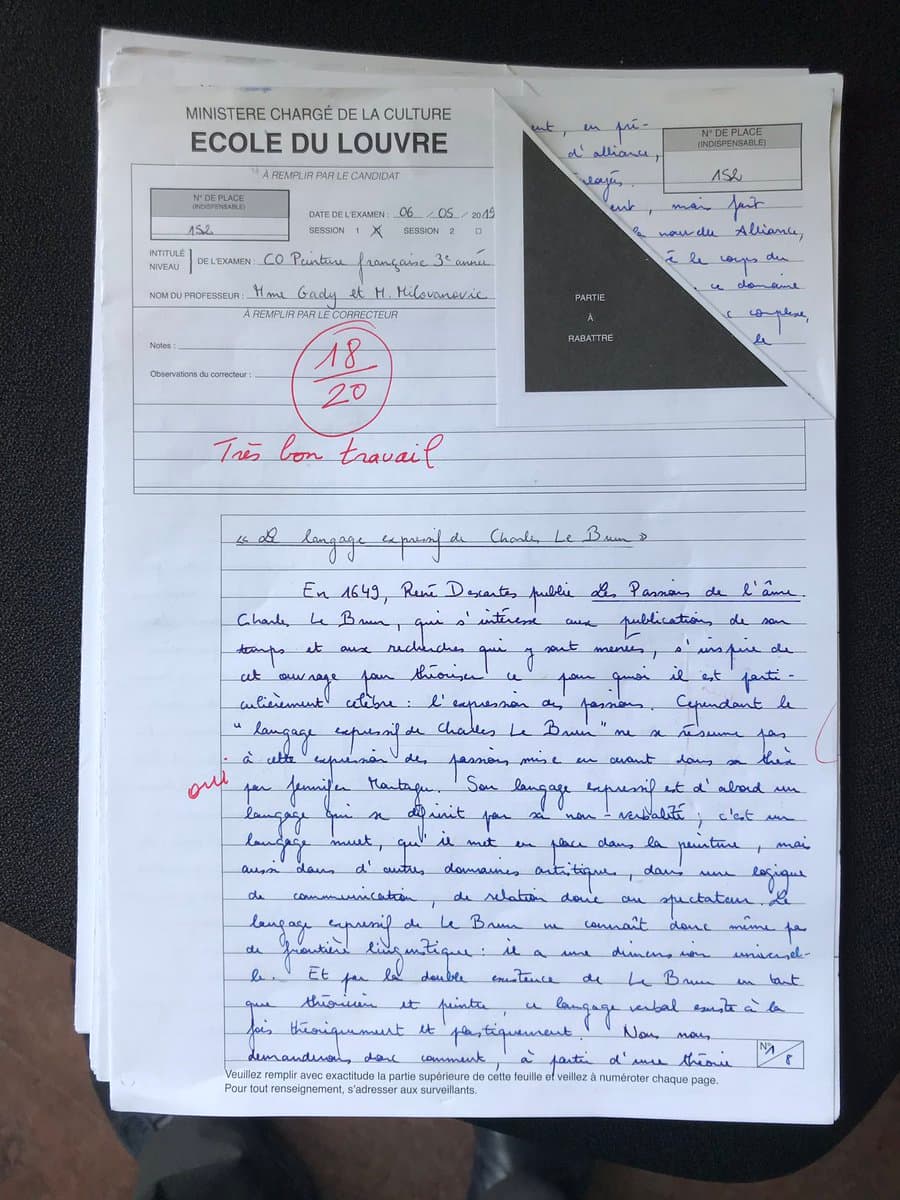 MINISTERE CHARGÉ DE LA CULTURE
ECOLE DU LOUVRE
À REMPLIR PAR LE CANDIDAT
N° DE PLACE
(INDISPENSABLE)
152
DATE DE L'EXAMEN : 06 / 05 / 2019
SESSION 1 X SESSION 2
INTITULÉ
NIVEAU
DE L'EXAMEN : CO Peinture française 3e année
NOM DU PROFESSEUR : Mme Gady et M. Milovanovic
À REMPLIR PAR LE CORRECTEUR
Notes :
18
20
Observations du correcteur :
Très bon travail
ent, en pré-
d'alliance,
N° DE PLACE
(INDISPENSABLE)
152
ent, mais fait
la nouvelle Alliance,
le corps du
ce domaine
complexe,
le
PARTIE
À
RABATTRE
« Le langage expressif de Charles Le Brun »
En 1649, René Descartes publie Les Passions de l'âme.
Charles Le Brun, qui s'intéresse aux publications de son
temps et aux recherches qui y sont menées, s'inspire de
cet ouvrage pour théoriser ce pour quoi il est parti-
culièrement célèbre : l'expression des passions. Cependant le
"langage expressif de Charles Le Brun" ne se résume pas
à cette expression des passions mise en avant dans sa thèse
oui
par Jennifer Montagu. Son langage expressif est d'abord un
langage qui se définit par sa non-verbalité ; c'est un
langage muet, qu'il met en place dans la peinture, mais
aussi dans d'autres domaines artistiques, dans une logique
de communication, de relation donc au spectateur. Le
langage expressif de Le Brun ne connaît donc même pas
de frontière linguistique : il a une dimension universel-
le. Et par la double existence de Le Brun en tant
que théoricien et peintre, ce langage verbal existe à la
fois théoriquement et plastiquement. Nous nous
demanderons donc comment, à partir d'une théorie
N° 1/8
Veuillez remplir avec exactitude la partie supérieure de cette feuille et veillez à numéroter chaque page.
Pour tout renseignement, s'adresser aux surveillants.